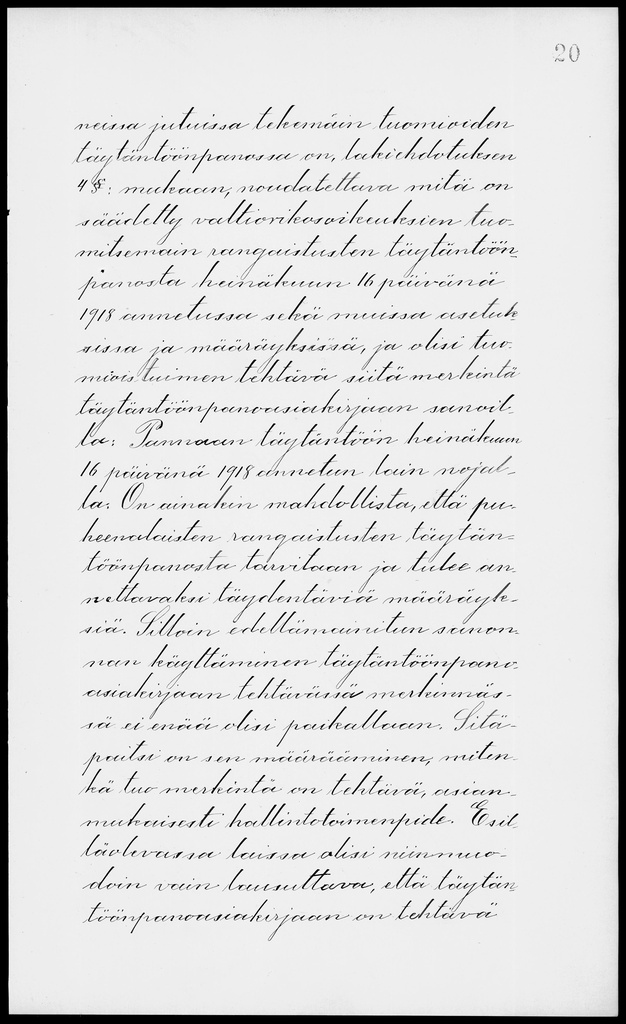 20
neissa jutuissa tekemäin tuomioiden
täytäntöönpanossa on, lakiehdotuksen
4 §: mukaan, noudatettava mitä on
säädetty valtiorikosoikeuksien tuo-
mitsemain rangaistusten täytäntöön-
panosta heinäkuun 16 päivänä
1918 annetussa sekä muissa asetuk-
sissa ja määräyksissä, ja olisi tuo-
mioistuimen tehtävä siitä merkintä
täytäntöönpanoasiakirjaan sanoil-
la: Pannaan täytäntöön heinäkuun
16 päivänä 1918 annetun lain nojal-
la. On ainakin mahdollista, että pu-
heenalaisten rangaistusten täytän-
töönpanosta tarvitaan ja tulee an-
nettavaksi täydentäviä määräyk-
siä. Silloin edellämainitun sanon-
nan käyttäminen täytäntöönpano-
asiakirjaan tehtävässä merkinnäs-
sä ei enää olisi paikallaan. Sitä-
paitsi on sen määrääminen, miten-
kä tuo merkintä on tehtävä, asian-
mukaisesti hallintotoimenpide. Esil-
läolevassa laissa olisi niinmuo-
doin vain lausuttava, että täytän-
töönpanoasiakirjaan on tehtävä